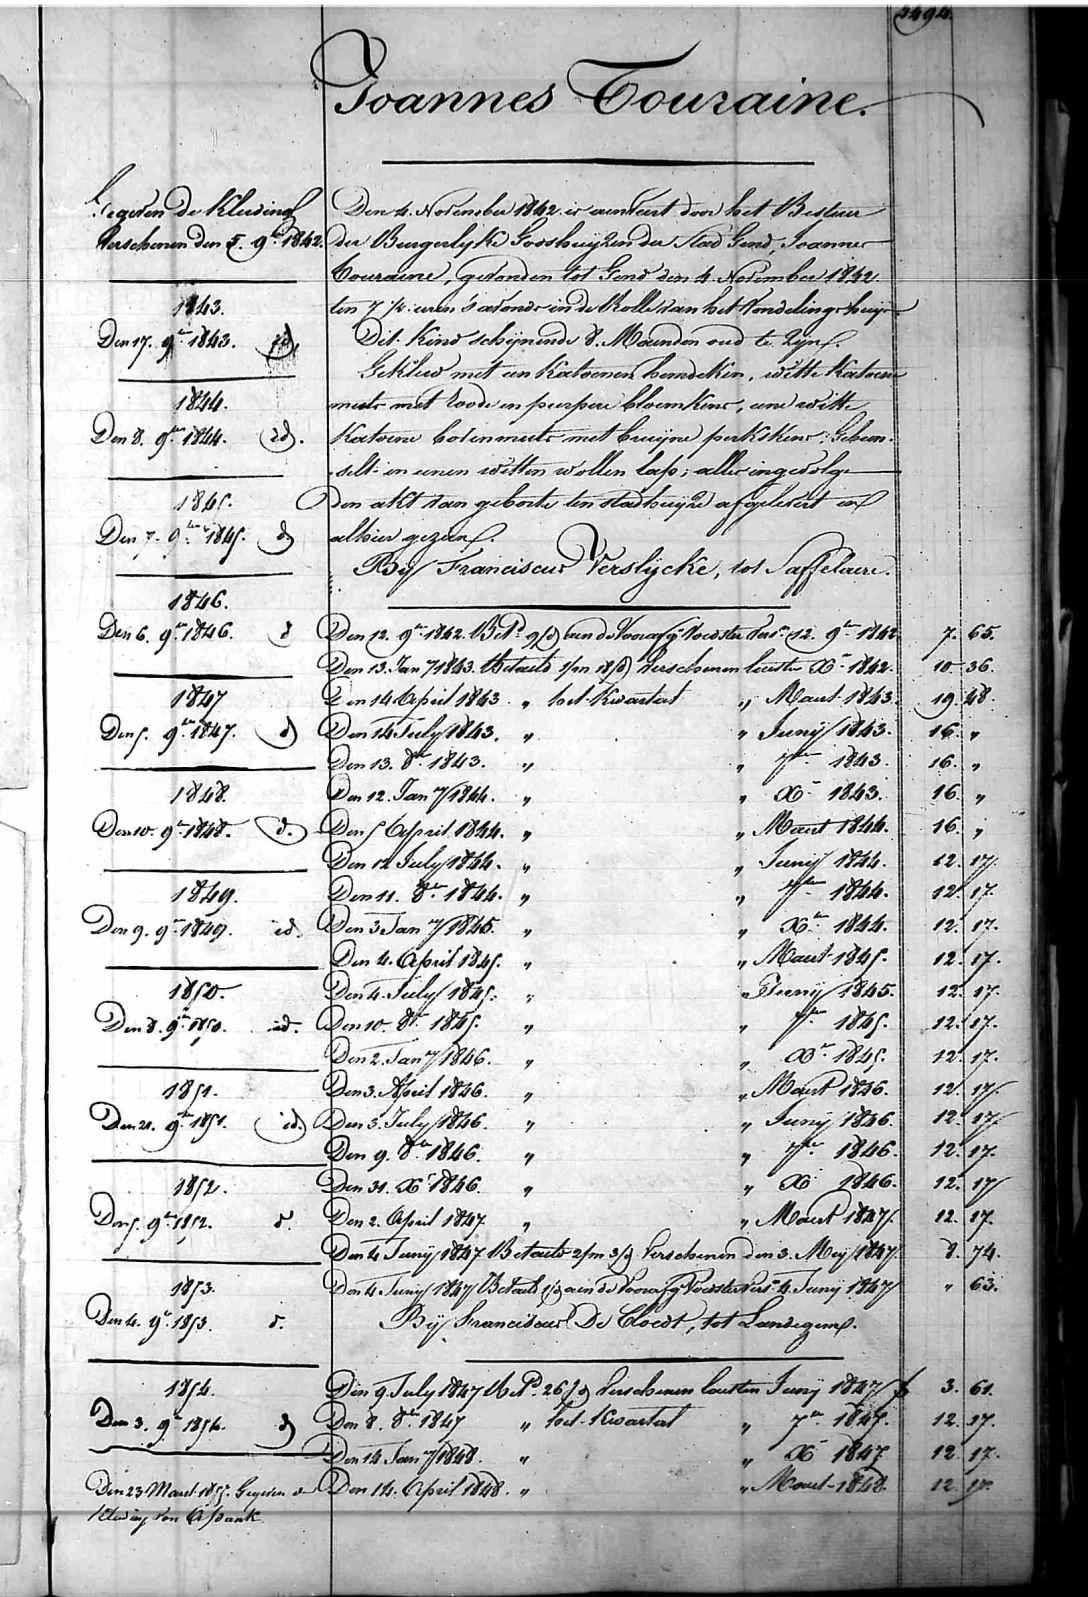 1494.
Joannes Touraine.
Gegeven de Kleeding
Verschenen den 5. 9ber 1842.
1843.
Den 17. 9ber 1843. id.
1844.
Den 8. 9ber 1844. id.
1845.
Den 7. 9ber 1845. d
1846.
Den 6. 9ber 1846. d
1847
Den 5. 9ber 1847. d
1848.
Den 10. 9ber 1848. d.
1849.
Den 9. 9ber 1849. id.
1850.
Den 8. 9ber 1850. id.
1851.
Den 21. 9ber 1851. id.
1852.
Den 5. 9ber 1852. d.
1853.
Den 4. 9ber 1853. d.
1854.
Den 3. 9ber 1854. d
Den 23 Maert 1855. Gegeven de
Kleeding van
Den 4. November 1842. is aenveirt door het Bestuer
der Burgerlyke Godshuyzen der Stad Gend, Joannes
Touraine, gevonden tot Gend den 4. November 1842.
ten 7 1/2 uren s'avonds in de Rolle van het Vondelingshuys
Dit Kind schynende 8. Maenden oud te zyn.
Gekleed met een Katoenen hemdeken, witte Katoene
muts met roode en purpere bloemkens, eene witte
Katoene bovenmuts met bruyne perkskens; Gebun-
selt in eenen witten wollen lap; alles ingevolge
den akt van geboorte ten stadhuyze afgelevert en
alhier gezien.
By Franciscus Verslycke, tot Saffelaere.
Den 12. 9ber 1842. Betd 9/d aen de Voorafge Voedster Vers. 12. 9ber 1842 7. 65.
Den 13. Jany 1843. Betaeld 1/m 18/d Verschenen leesten Xber 1842. 10. 36.
Den 14 April 1843 „ het Kwartael „ Maert 1843. 19. 48.
Den 14 July 1843. „ „ Juny 1843. 16. „
Den 13. 8ber 1843. „ „ 7ber 1843. 16. „
Den 12. Jany 1844. „ „ Xber 1843. 16. „
Den 5 April 1844. „ „ Maert 1844. 16. „
Den 12 July 1844. „ „ Juny 1844. 12. 17.
Den 11. 8ber 1844. „ „ 7ber 1844. 12. 17.
Den 3 Jany 1845. „ „ Xber 1844. 12. 17.
Den 4. April 1845. „ „ Maert 1845. 12. 17.
Den 4. July 1845. „ „ Juny 1845. 12. 17.
Den 10. 8ber 1845. „ „ 7ber 1845. 12. 17.
Den 2. Jany 1846. „ „ Xber 1845. 12. 17.
Den 3. April 1846. „ „ Maert 1846. 12. 17.
Den 3. July 1846. „ „ Juny 1846. 12. 17.
Den 9. 8ber 1846. „ „ 7ber 1846. 12. 17.
Den 31. Xber 1846. „ „ Xber 1846. 12. 17
Den 2. April 1847. „ „ Maert 1847. 12. 17.
Den 4 Juny 1847 Betaeld 2/m 3/d Verschenen den 3. Mey 1847 8. 74.
Den 4 Juny 1847 Betaeld 1/d aen de Voorafge Voedster Vers. 4 Juny 1847 „ 63.
By Franciscus De Cloedt, tot Landegem.
Den 9 July 1847 Betd 26/d Verschenen leesten Juny 1847 f 3. 61.
Den 8. 8ber 1847 „ het Kwartael „ 7ber 1847. 12. 17.
Den 14 Jany 1848. „ „ Xber 1847 12. 17.
Den 14. April 1848. „ „ Maert 1848. 12. 17.